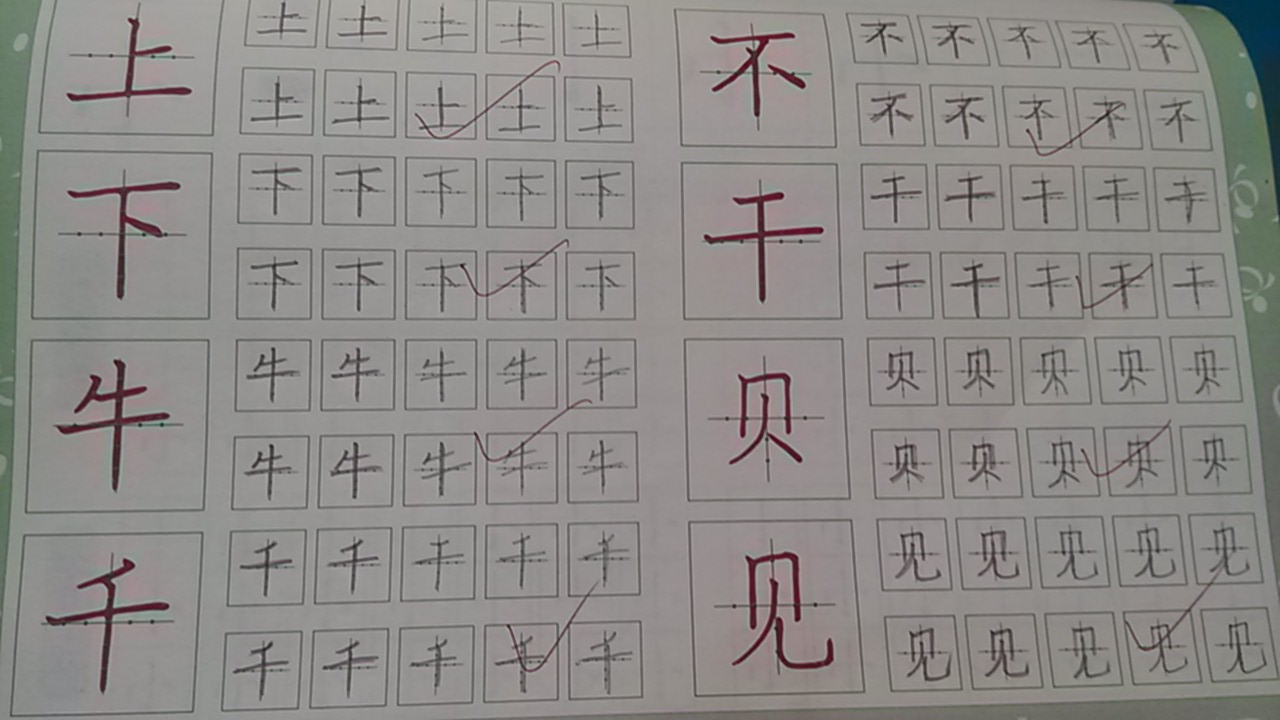 上 上 上 上 上 上
上 上 上 上 上
下 下 下 下 下 下
下 下 下 下 下
牛 牛 牛 牛 牛 牛
牛 牛 牛 牛 牛
千 千 千 千 千 千
千 千 千 千 千
不 不 不 不 不 不
不 不 不 不 不
干 干 干 干 干 干
干 干 干 干 干
贝 贝 贝 贝 贝 贝
贝 贝 贝 贝 贝
见 见 见 见 见 见
见 见 见 见 见